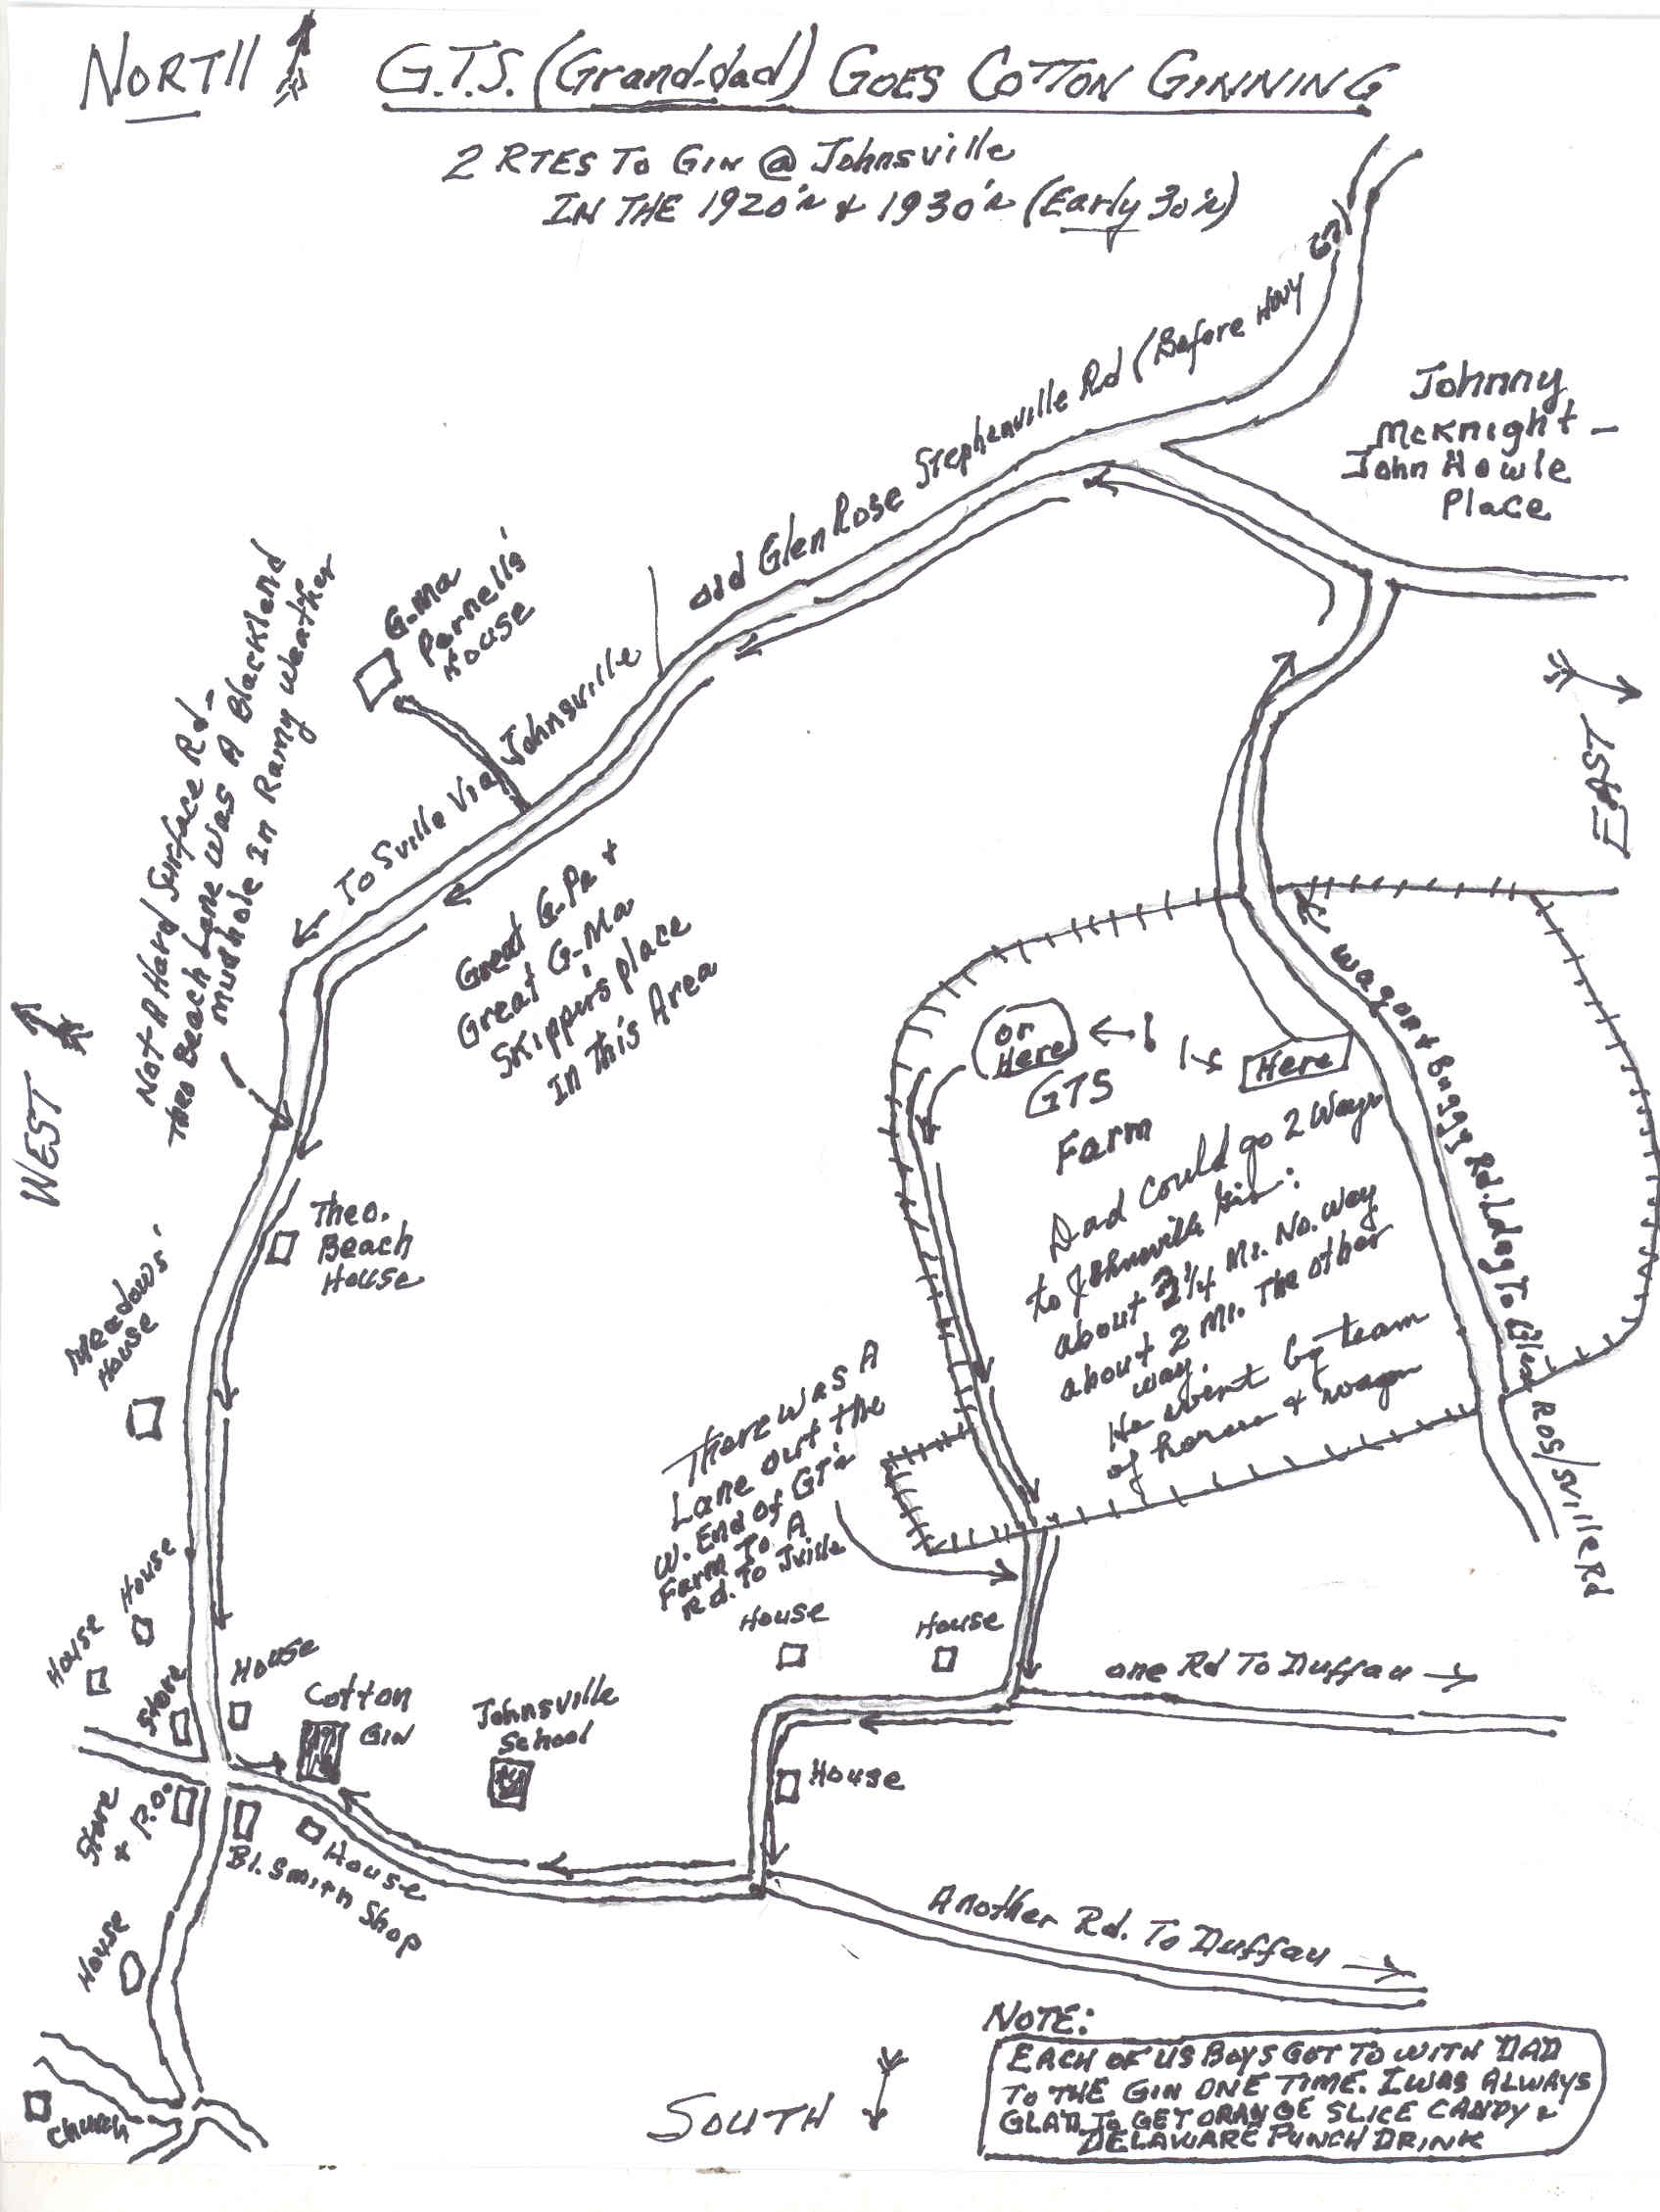 NORTH
G.T.S. (Grand.dad) GOES COTTON GINNING
2 RTES TO GIN @ Johnsville
IN THE 1920's & 1930's (Early 30's)
Old Glen Rose Stephenville Rd (Before Hwy 67)
Johnny
McKnight -
John Howle
Place
G.Ma
Parnell's
House
To Sville Via Johnsville
Not A Hard Surface Rd -
Theo Beach Lane Was A Blackland
Mudhole In Rainy Weather
EAST
WEST
Great G.Pa +
Great G-Ma
Skippers Place
In This Area
Wagon & Buggy Rd. Ldng To Glen Ros/Sville Rd
or
Here
Here
GTS
Farm
Dad Could go 2 Ways
to Johnsville Gin:
about 3 1/4 Mi. No. Way
about 2 Mi. The other
way.
He went by team
of horses & wagon
Theo.
Beach
House
Meadows'
House
There was A
Lane out the
W. End of GT's
Farm To A
Rd. To Jville
House
House
House
House
Store
House
Cotton
Gin
Johnsville
School
one Rd To Duffau
House
Store
+ P.O.
Bl. Smith Shop
House
House
Another Rd. To Duffau
Church
SOUTH
NOTE:
EACH OF US BOYS GOT TO WITH DAD
TO THE GIN ONE TIME. I WAS ALWAYS
GLAD TO GET ORANGE SLICE CANDY &
DELAWARE PUNCH DRINK